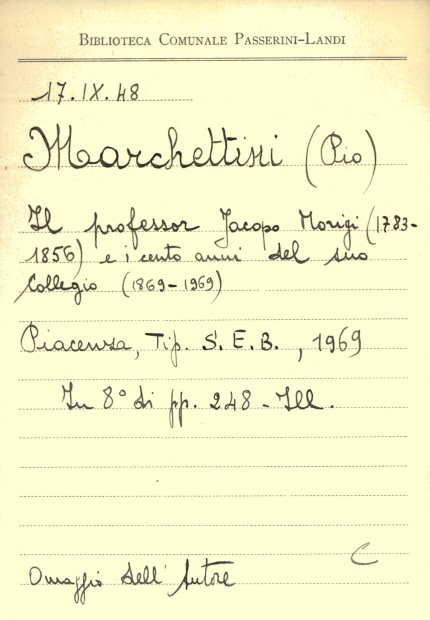 BIBLIOTECA COMUNALE PASSERINI-LANDI
17.IX.48
Marchettini (Pio)
Il professor Jacopo Morigi (1783-
1856) e i cento anni del suo
Collegio (1869-1969)
Piacenza, Tip. S.E.B., 1969
In 8° di pp. 248 - Ill.
C
Omaggio dell'Autore